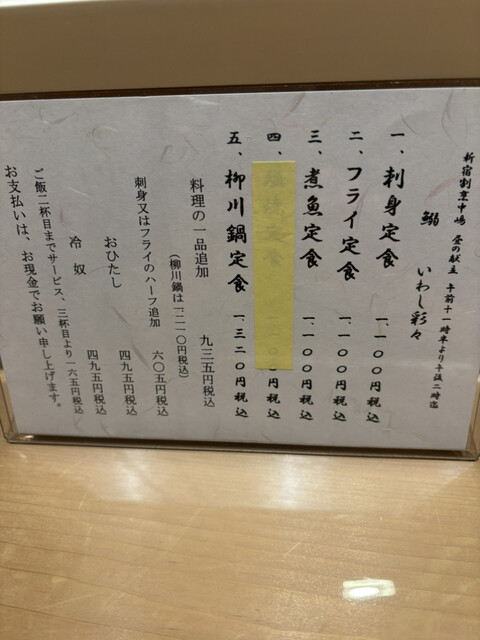 新宿割烹中嶋 昼の献立 午前十一時半より午後二時迄
鰯 いわし彩々
一、刺身定食 一、一〇〇円税込
二、フライ定食 一、一〇〇円税込
三、煮魚定食 一、一〇〇円税込
四、 定食 一、一〇〇円税込
五、柳川鍋定食 一、三二〇円税込
料理の一品追加 九三五円税込
(柳川鍋は一、二一〇円税込)
刺身又はフライのハーフ追加 六〇五円税込
おひたし 四九五円税込
冷奴 四九五円税込
ご飯二杯目までサービス、三杯目より一六五円税込
お支払いは、お現金でお願い申し上げます。